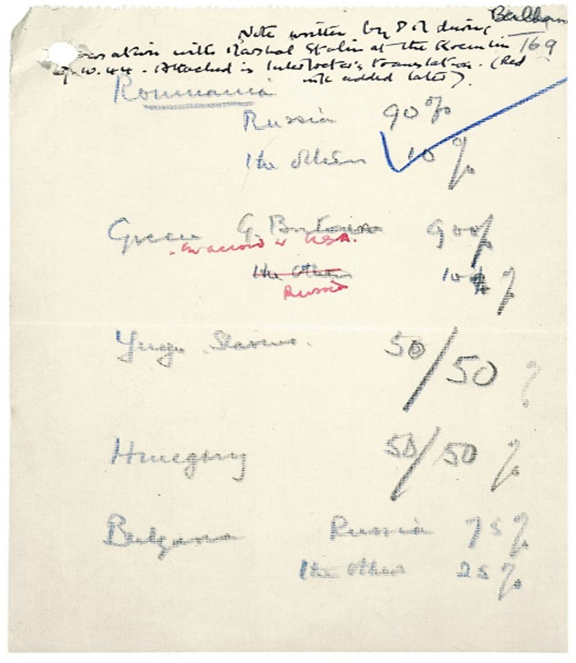 Note written by P M during
conversation with Marshal Stalin at the Kremlin 169
Attached is Interlocutor's translation. (Red
ink added later).
Roumania
Russia 90%
The others 10%
Greece G. Britain 90%
in accord w USA.
The Others 10%
Russia
Yugo Slavia. 50/50 %
Hungary 50/50 %
Bulgaria Russia 75%
The others 25%